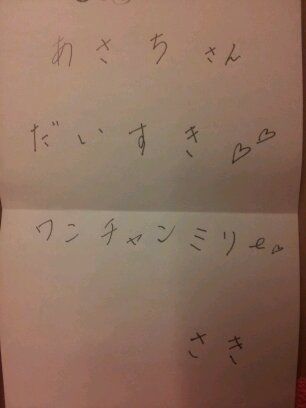 あさちさん
だいすき♡♡
ワンチャンミリe♡
さき